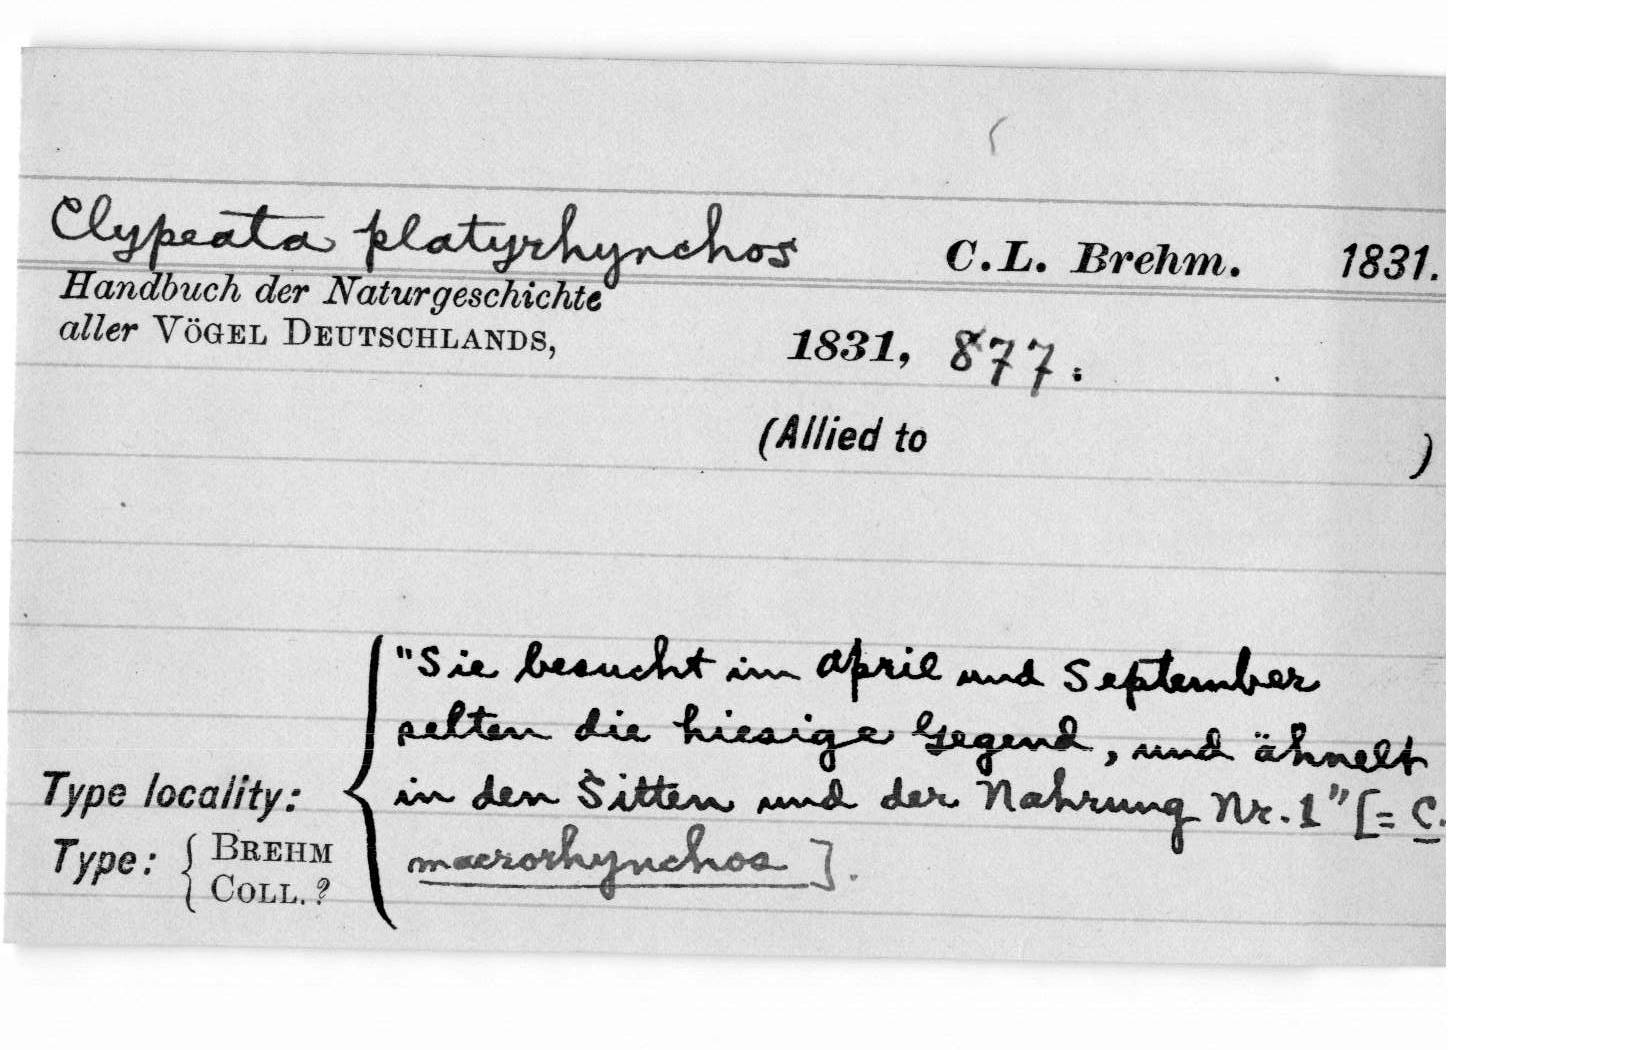 Clypeata platyrhynchos C.L. Brehm. 1831.
Handbuch der Naturgeschichte
aller VÖGEL DEUTSCHLANDS, 1831, 877.
(Allied to )
"Sie besucht im April und September
selten die hiesige Gegend, und ähnelt
Type locality: in den Sitten und der Nahrung Nr. 1" [= C.
Type: { BREHM COLL. ? macrorhynchos ].